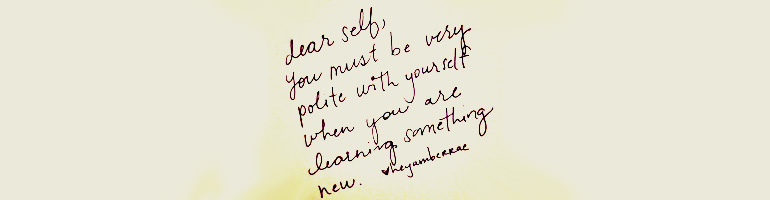 dear self,
you must be very
polite with yourself
when you are
learning something
new. ♥heyamberrae